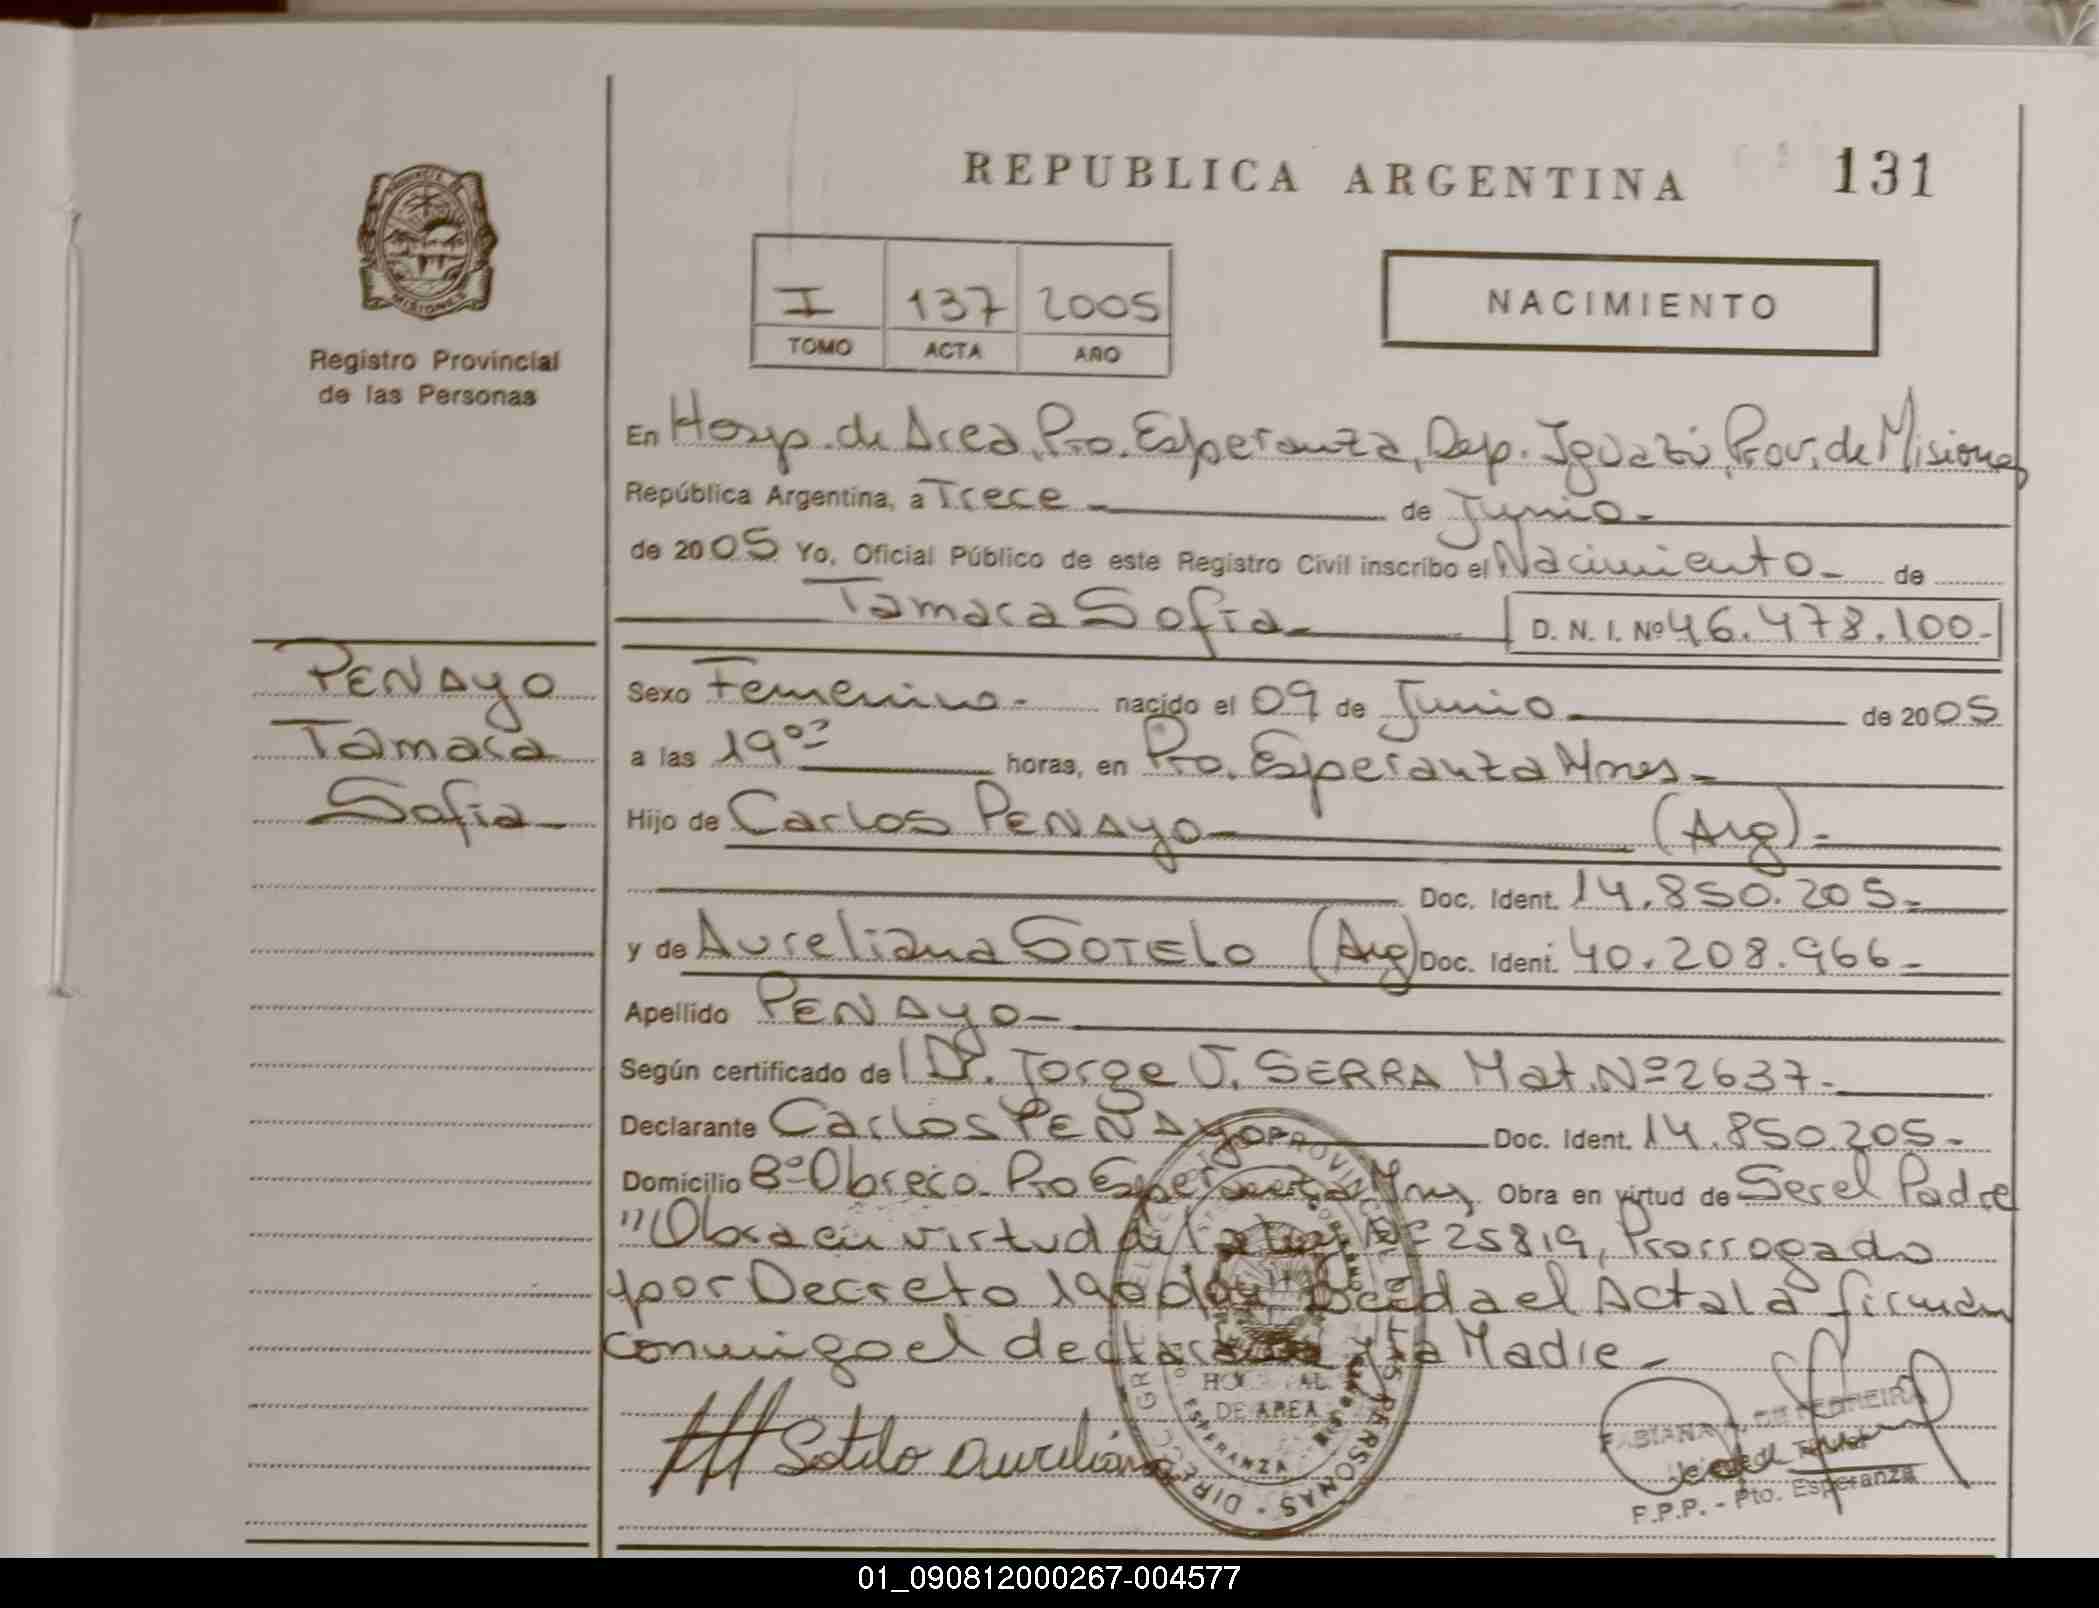 REPUBLICA ARGENTINA 131
PROVINCIA
MISIONES
Registro Provincial
de las Personas
I 137 2005
TOMO ACTA AÑO
NACIMIENTO
En Hosp. de Area, Pto. Esperanza, Dep. Iguazú, Prov. de Misiones
República Argentina, a Trece de Junio
de 2005 Yo, Oficial Público de este Registro Civil inscribo el Nacimiento de
Tamara Sofia D. N. I. Nº 46.478.100.-
PENAYO
Tamara
Sofia
Sexo Femenino.- nacido el 09 de Junio de 2005
a las 19 horas, en Pto. Esperanza Mnes.-
Hijo de Carlos PENAYO (Arg).-
Doc. Ident. 14.850.205.-
y de Aureliana SOTELO (Arg) Doc. Ident. 40.208.966.-
Apellido PENAYO-
Según certificado de Dr. Jorge J. SERRA Mat. Nº 2637.-
Declarante Carlos PEÑAYO Doc. Ident. 14.850.205.-
Domicilio Bº Obrero. Pto Esperanza Mnes Obra en virtud de Ser el Padre
"Obra en virtud de la ley Nº 25819, Prorrogado
por Decreto Leída el Acta la firman
conmigo el declarante y la Madre-
Sotelo Aureliana
HOSPITAL
DE AREA
ESPERANZA
DIRECC. GRAL. DEL REGISTRO PROVINCIAL DE LAS PERSONAS
FABIANA DE FERREIRA
F.P.P. - Pto. Esperanza
01_090812000267-004577